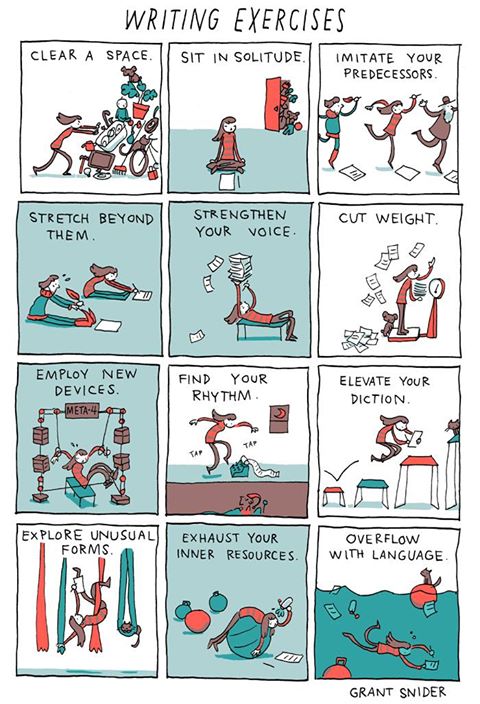 WRITING EXERCISES
CLEAR A SPACE.
SIT IN SOLITUDE.
IMITATE YOUR
PREDECESSORS.
STRETCH BEYOND
THEM.
STRENGTHEN
YOUR VOICE.
CUT WEIGHT.
EMPLOY NEW
DEVICES.
META-4
FIND YOUR
RHYTHM.
TAP
TAP
ELEVATE YOUR
DICTION.
EXPLORE UNUSUAL
FORMS.
EXHAUST YOUR
INNER RESOURCES.
OVERFLOW
WITH LANGUAGE.
GRANT SNIDER